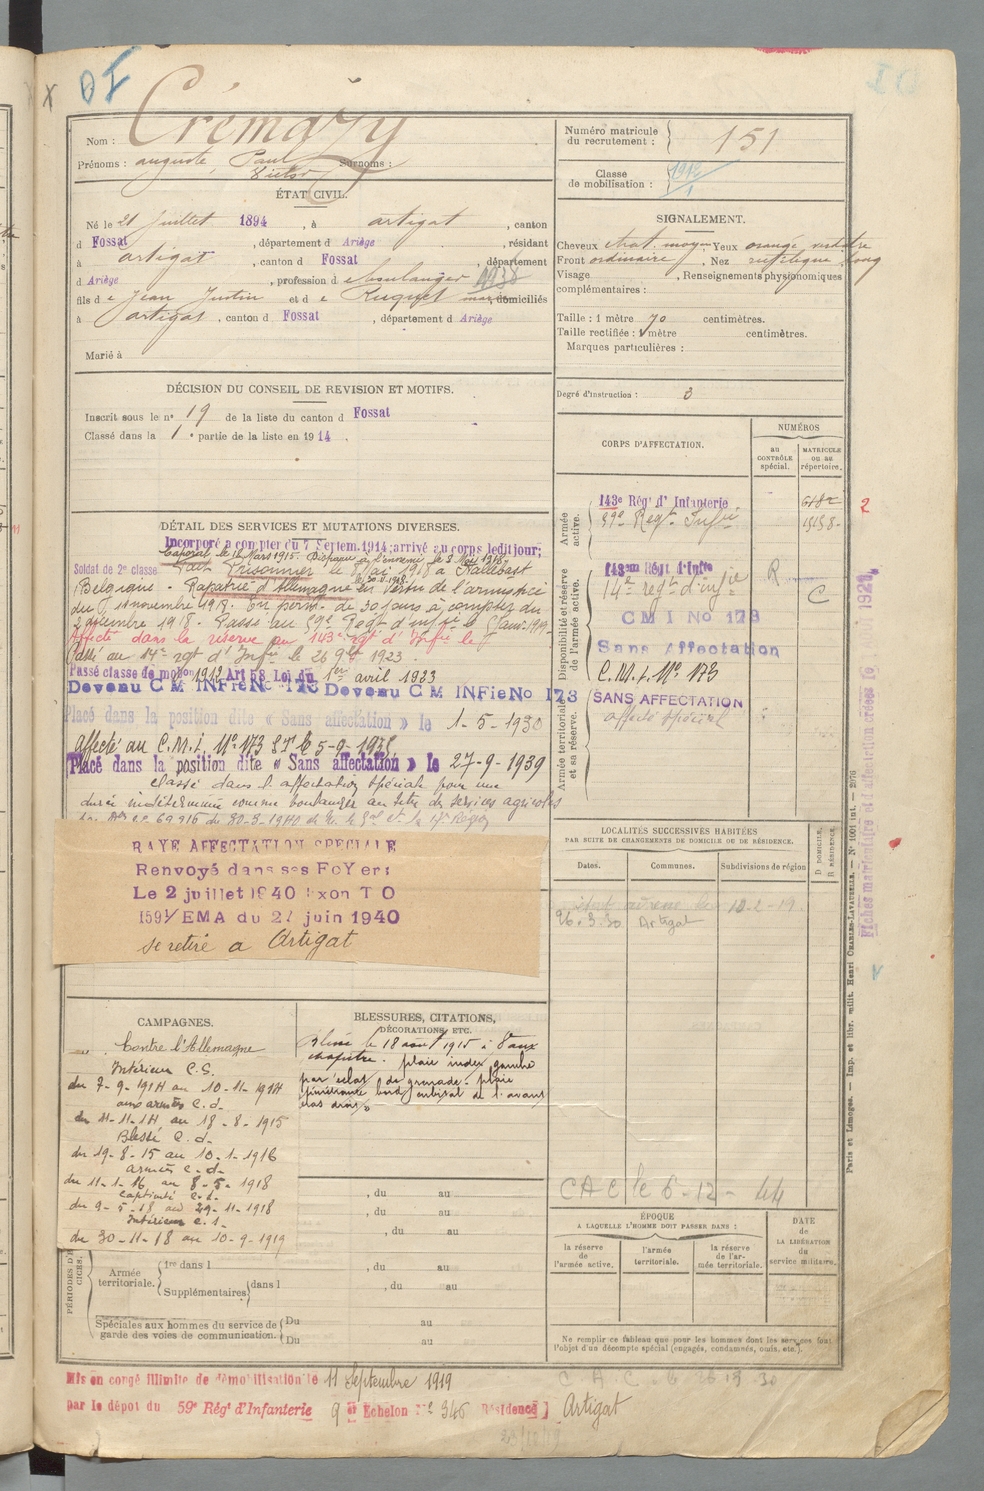 Crémazy
Nom :
Prénoms : auguste Paul Surnoms :
Victor
Numéro matricule
du recrutement : 151
Classe
de mobilisation : 1912
1
ÉTAT CIVIL.
Né le 21 Juillet 1894, à artigat, canton
d Fossat, département d Ariège, résidant
à artigat, canton d Fossat, département
d Ariège, profession d boulanger 1938
fils d e Jean Justin et d e Ruquet domiciliés
à artigat, canton d Fossat, département d Ariège
Marié à
SIGNALEMENT.
Cheveux chat. moyen Yeux orangé verdâtre
Front ordinaire, Nez rectiligne long
Visage , Renseignements physionomiques
complémentaires :
Taille : 1 mètre 70 centimètres.
Taille rectifiée : 1 mètre centimètres.
Marques particulières :
Degré d'instruction : 3
DÉCISION DU CONSEIL DE REVISION ET MOTIFS.
Inscrit sous le n° 19 de la liste du canton d Fossat
Classé dans la 1 e partie de la liste en 1914.
DÉTAIL DES SERVICES ET MUTATIONS DIVERSES.
Incorporé a compter du 7 Septem. 1914; arrivé au corps ledit jour;
Caporal le 12 Mars 1915. Disparu à l'ennemi le 8 Mai 1918.
Soldat de 2e classe Fait Prisonnier le 8 Mai 1918 à
Belgique Rapatrié d'Allemagne en vertu de l'armistice
du 11 novembre 1918. En perm. de 30 jours à compter du
2 décembre 1918. Passé au 59e Regt d'inf ie le
Affecté dans la réserve au 143e rgt d'Inf ie le
Passé au 14e rgt d'Inf ie le 26 9bre 1923.
Passé classe de mobon 1912 Art 58 Loi du 1er avril 1923
Devenu C M INFie No 173 Devenu C M INFie No 173
Placé dans la position dite « Sans affectation » le 1-5-1930
affecté au C.M.I. N° 173
Placé dans la position dite « Sans affectation » le 27-9-1939
classé dans l'affectation spéciale pour une
durée indéterminée comme boulanger au titre des services agricoles
RAYE AFFECTATION SPECIALE
Renvoyé dans ses FoYers
Le 2 juillet 1940 Exon T O
1591/EMA du 27 juin 1940
se retire a Artigat
CORPS D'AFFECTATION.
NUMÉROS
au
CONTRÔLE
spécial.
MATRICULE
ou au
répertoire.
Armée
active.
143e Régt d' Infanterie
59e Regt Inf ie
Disponibilité et réserve
de l'armée active.
143em Régt d'Infie
14e regt d'inf ie R C
C M I No 173
Sans Affectation
C.M.I. N° 173
Armée territoriale
et sa réserve.
SANS AFFECTATION
affecté spécial
2
LOCALITÉS SUCCESSIVES HABITÉES
PAR SUITE DE CHANGEMENTS DE DOMICILE OU DE RÉSIDENCE.
D DOMICILE,
R RÉSIDENCE.
Dates.
Communes.
Subdivisions de région
26.3.30 Artigat
CAC le 6-12-44
CAMPAGNES.
Contre l'Allemagne
Intérieur C.S.
du 7-9-1914 au 10-11-1914
aux armées C.d.
du 11-11-14 au 18-8-1915
Blessé C.d.
du 19-8-15 au 10-1-1916
armées C.d.
du 11-1-16 au 8-5-1918
captivité
du 9-5-18 au 29-11-1918
Intérieur C.1.
du 30-11-18 au 10-9-1919
BLESSURES, CITATIONS,
DÉCORATIONS, ETC.
Blessé le 18 août 1915 à Vaux
chapitre. plaie index gauche
par éclat de grenade. plaie
pénétrante bord cubital de l'avant
bras droit.
, du au
, du au
, du au
PÉRIODES D'EXERCICES.
Armée
territoriale.
1re dans l , du au
Supplémentaires dans l , du au
Spéciales aux hommes du service de
garde des voies de communication.
Du au
Du au
ÉPOQUE
A LAQUELLE L'HOMME DOIT PASSER DANS :
la réserve
de
l'armée active.
l'armée
territoriale.
la réserve
de l'armée territoriale.
DATE
de
LA LIBÉRATION
du
service militaire.
Ne remplir ce tableau que pour les hommes dont les services font
l'objet d'un décompte spécial (engagés, condamnés, omis, etc.).
Mis en congé illimité de démobilisation le 11 Septembre 1919
par le dépôt du 59e Régt d'Infanterie 9 e Echelon N° 346 Résidence Artigat
Paris et Limoges. — Imp. et libr. milit. Henri CHARLES-LAVAUZELLE. — N° 1001 int. — 2076